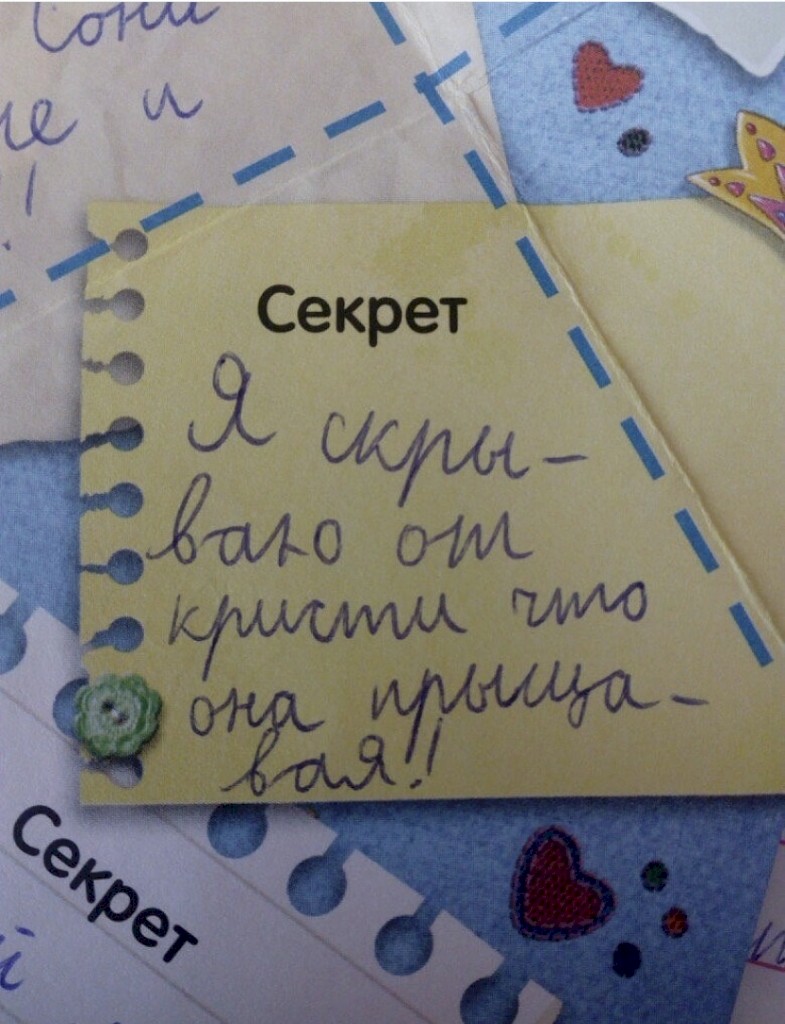 Сони
не и
!!
Секрет
Я скры-
ваю от
кристи что
она прыща-
вая!!
Секрет
й